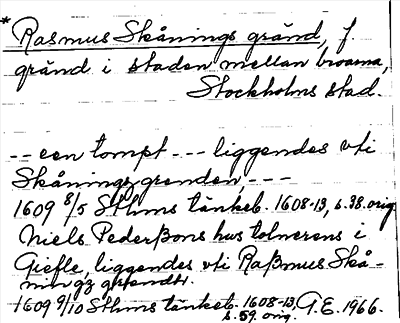 * Rasmus Skånings gränd, f.
gränd i staden mellan broarna,
Stockholms stad.
-- een tompt --- liggendes vti
Skåningzgrenden, ---
1609 8/5 Sthms tänkeb. 1608-13, s.38. orig.
Niels Pederßons hus tolnerens i
Giefle, liggendes vti Raßmus Skå-
ningz grendt.
1609 9/10 Sthms tänkeb. 1608-13, G.E. 1966.
s.59. orig.